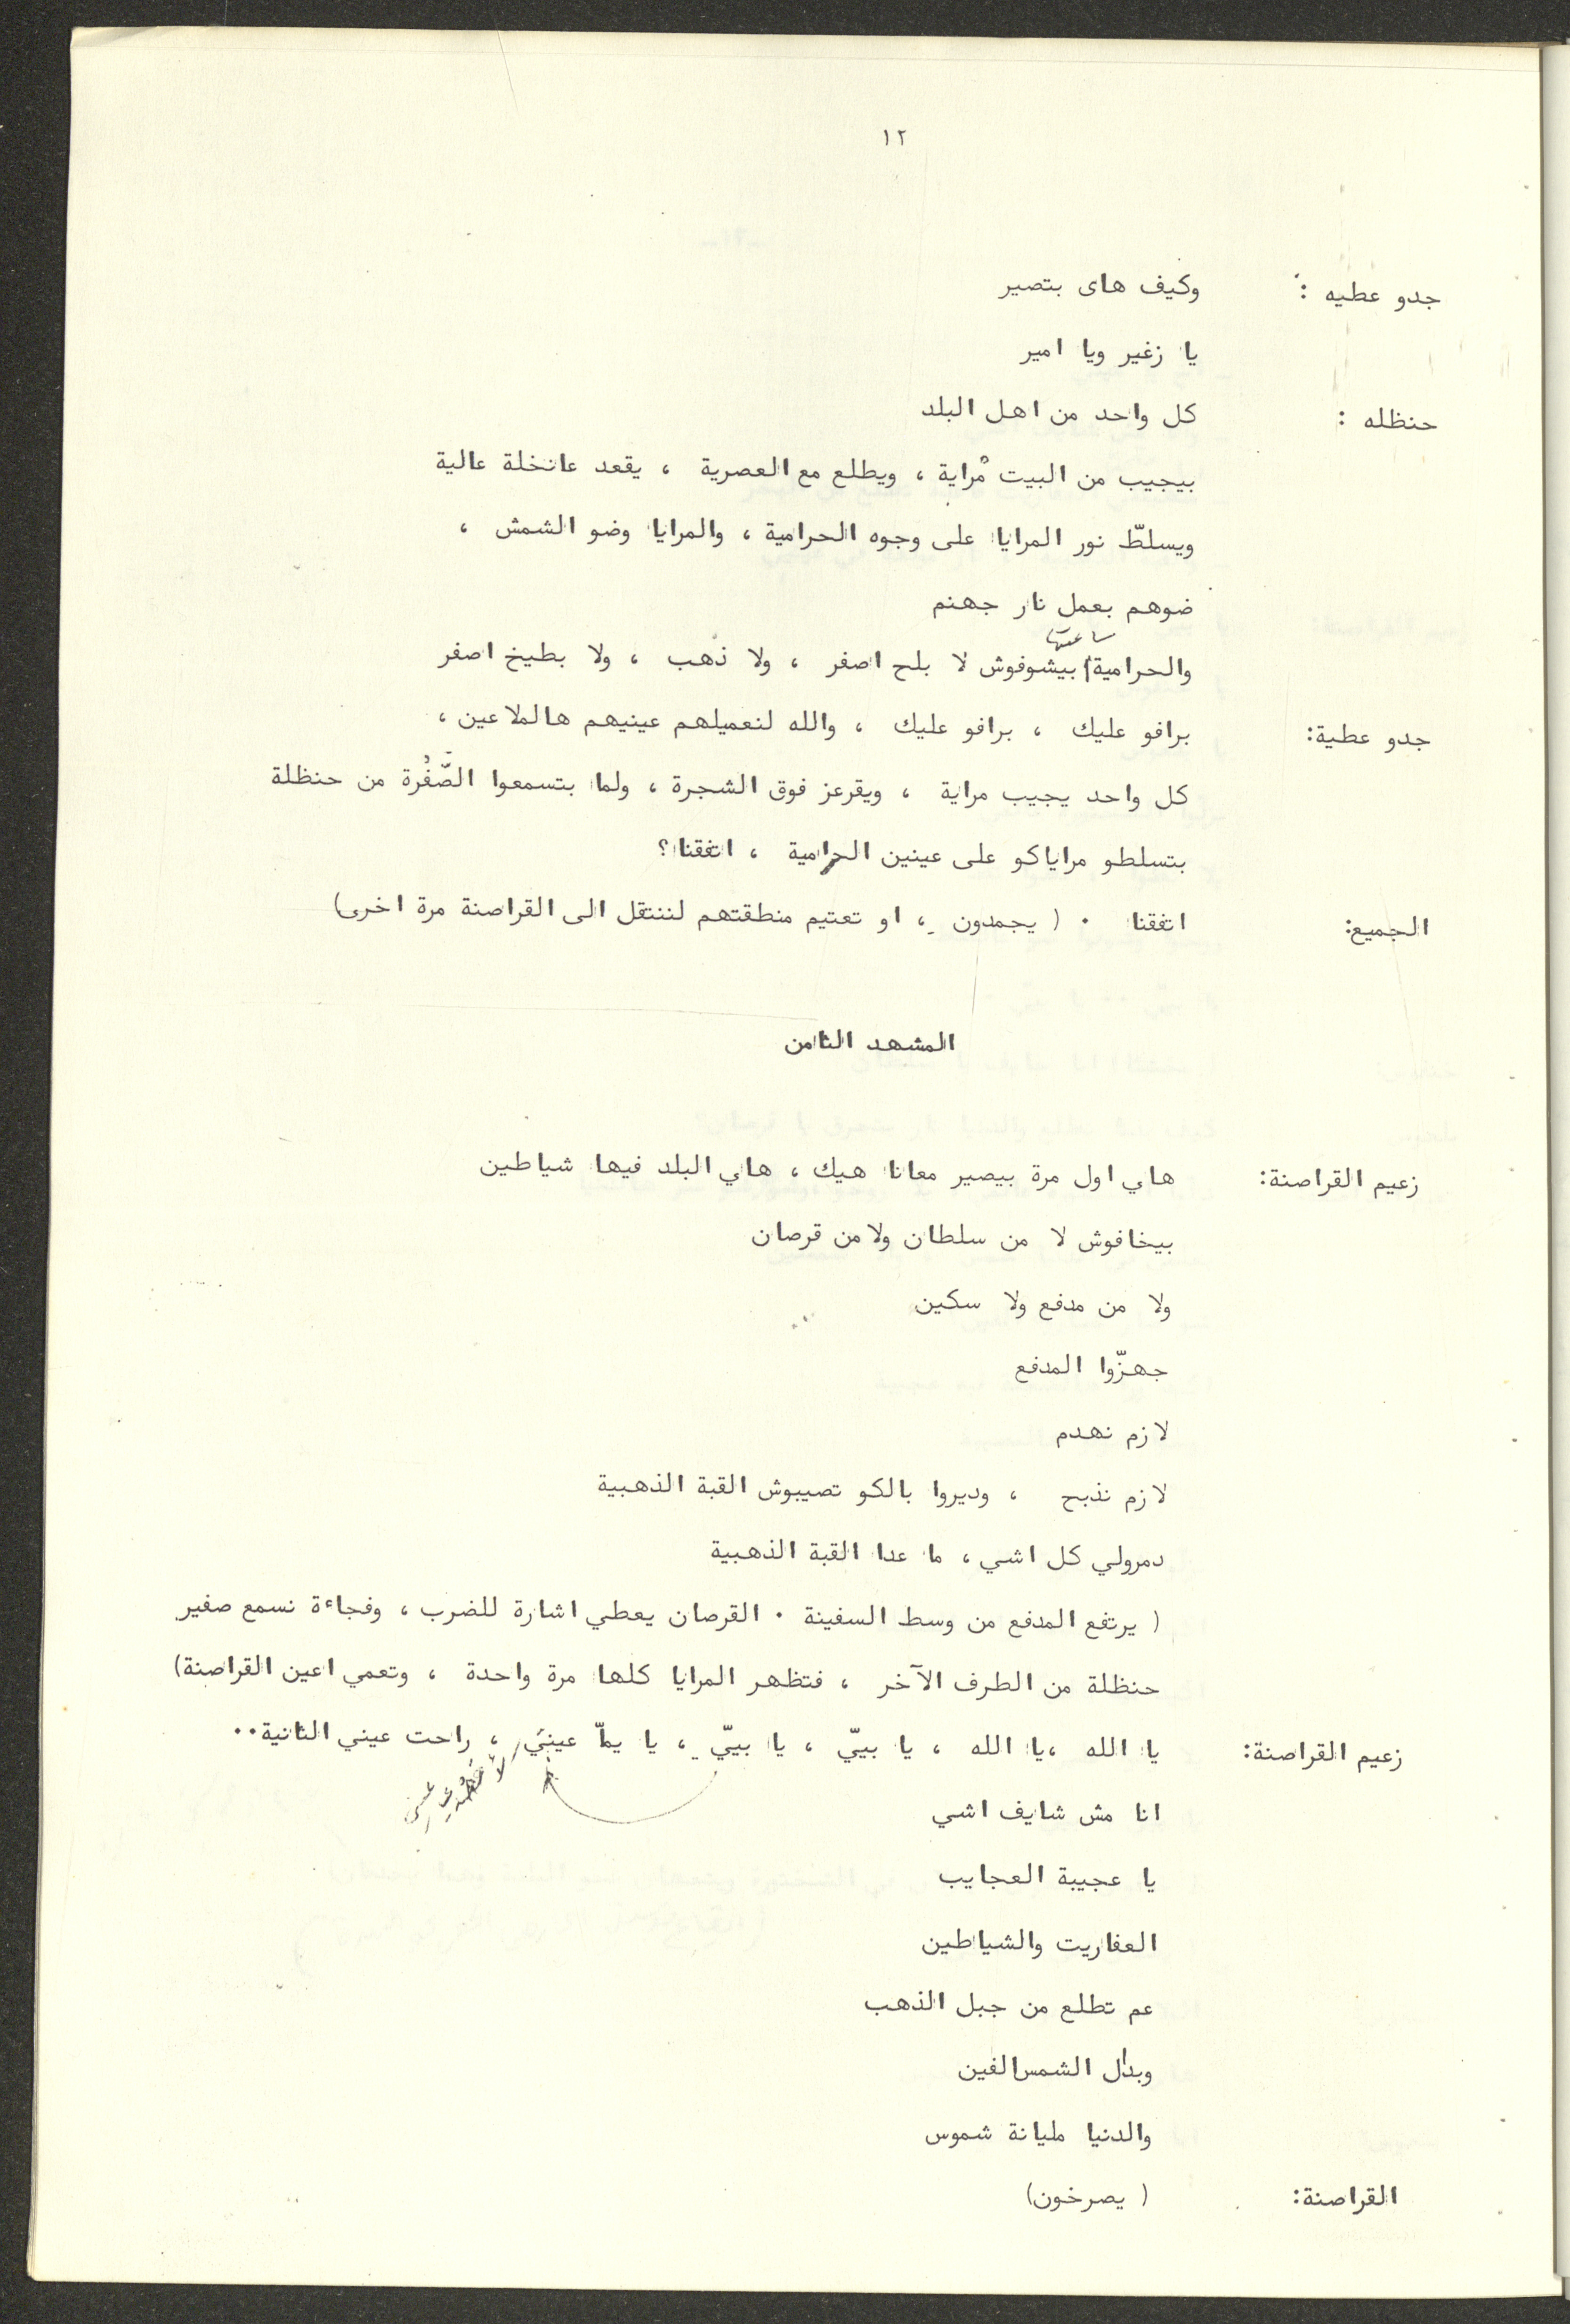 ١٢
جدو عطيه : وكيف هاى بتصير
يا زغير ويا امير
حنظله : كل واحد من اهل البلد
بيجيب من البيت مْراية ، ويطلع مع العصرية ، يقعد عانخلة عالية
ويسلطّ نور المرايا على وجوه الحرامية ، والمرايا وضو الشمش ،
ضوهم بعمل نار جهنم
ساعيتها
والحرامية بيشوفوش لا بلح اصفر ، ولا ذهب ، ولا بطيخ اصفر
جدو عطية: برافو عليك ، برافو عليك ، والله لنعميلهم عينيهم هالملاعين ،
كل واحد يجيب مراية ، ويقرعز فوق الشجرة ، ولما بتسمعوا الصّفْرة من حنظلة
بتسلطو مراياكو على عينين الحرامية ، اتفقنا؟
الجميع: اتفقنا . ( يجمدون ، او تعتيم منطقتهم لننتقل الى القراصنة مرة اخرى)
المشهد الثامن
زعيم القراصنة: هاي اول مرة بيصير معانا هيك ، هاي البلد فيها شياطين
بيخافوش لا من سلطان ولا من قرصان
ولا من مدفع ولا سكين
جهزّوا المدفع
لازم نهدم
لازم نذبح ، وديروا بالكو تصيبوش القبة الذهبية
دمرولي كل اشي ، ما عدا القبة الذهبية
( يرتفع المدفع من وسط السفينة . القرصان يعطي اشارة للضرب ، وفجاءة نسمع صفير
حنظلة من الطرف الآخر ، فتظهر المرايا كلها مرة واحدة ، وتعمي اعين القراصنة)
زعيم القراصنة: يا الله ،يا الله ، يا بييّ ، يا بييّ ، يا يماّ عيني ، راحت عيني الثانية..
عيني
انا مش شايف اشي
يا عجيبة العجايب
العفاريت والشياطين
عم تطلع من جبل الذهب
وبدال الشمس الفين
والدنيا مليانة شموس
القراصنة: ( يصرخون)